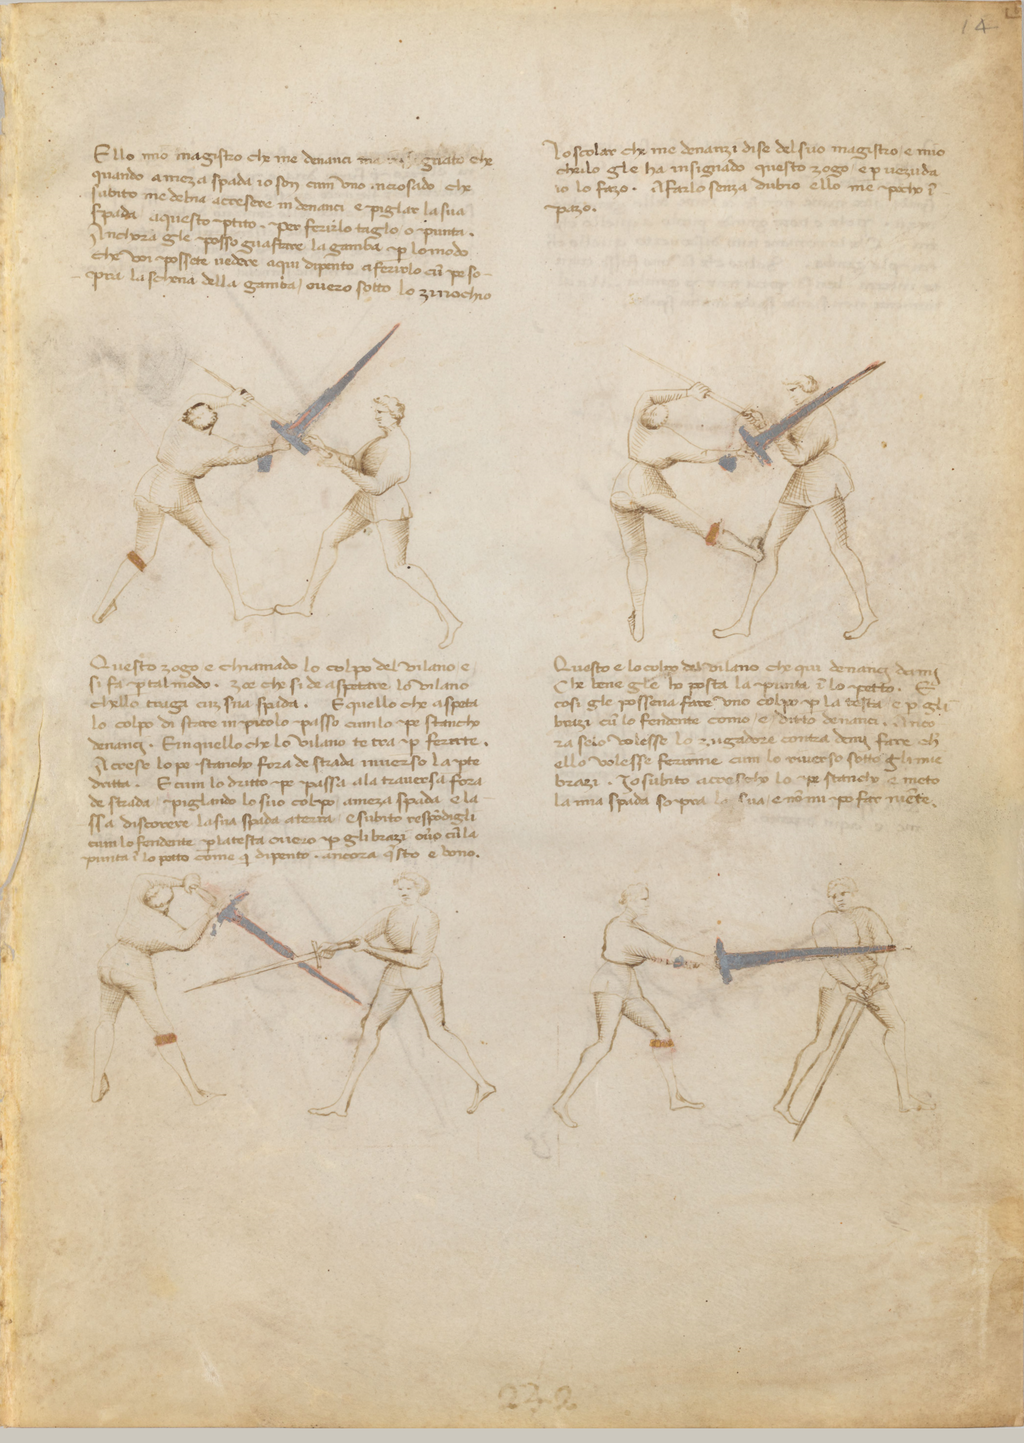 14
Ello mio magistro che me denanci ma gnato che
quando a meza spada io son cum uno incrosado che
subito me debia acresere in denanci e piglar la sua
spada a questo ptito. per ferirlo taglo o punta.
Anchora gle posso guastare la gamba p lo modo
che voi possete vedere aqui dipento a ferirlo cū pe so-
pra la schena della gamba / overo sotto lo zinochio
Lo scolar che me denanzi dise del suo magistro e mio
cheilo gle ha insignado questo zogo / e p vezuda
io lo fazo. A farlo senza dubio ello me pocho ī-
pazo.
Questo zogo e chiamado lo colpo del vilano e
si fa p tal modo. zoe che si de aspetare lo vilano
chello tragi cuz sua spada. E quello che aspeta
lo colpo di stare in picolo passo cum lo pe stancho
denanci. E in quello che lo vilano te tra p ferirte.
Acrese lo pe stancho fora de strada inverso la pte
dritta. E cum lo dritto pe passa ala traversa fora
de strada / piglando lo suo colpo a meza spada e la-
ssa discorere la sua spada a terra / e subito respōdigli
cum lo fendente p la testa overo p gli brazi ovo cū la
punta ī lo petto come q dipento. ancora q̄sto e bono.
Questo e lo colpo del vilano che qui denanci da mi
Che bene gle ho posta la punta ī lo petto. E
cosi gle posseva fare uno colpo p la testa e p gli
brazi cū lo fendente como e ditto denanci. Anco-
ra se io volesse lo zugadore contra demi fare ch
ello volesse ferirme cum lo riverso sotto gli mie
brazi. Io subito acrescho lo pe stancho e meto
la mia spada sopra la sua / e nō mi po far niēte.
232